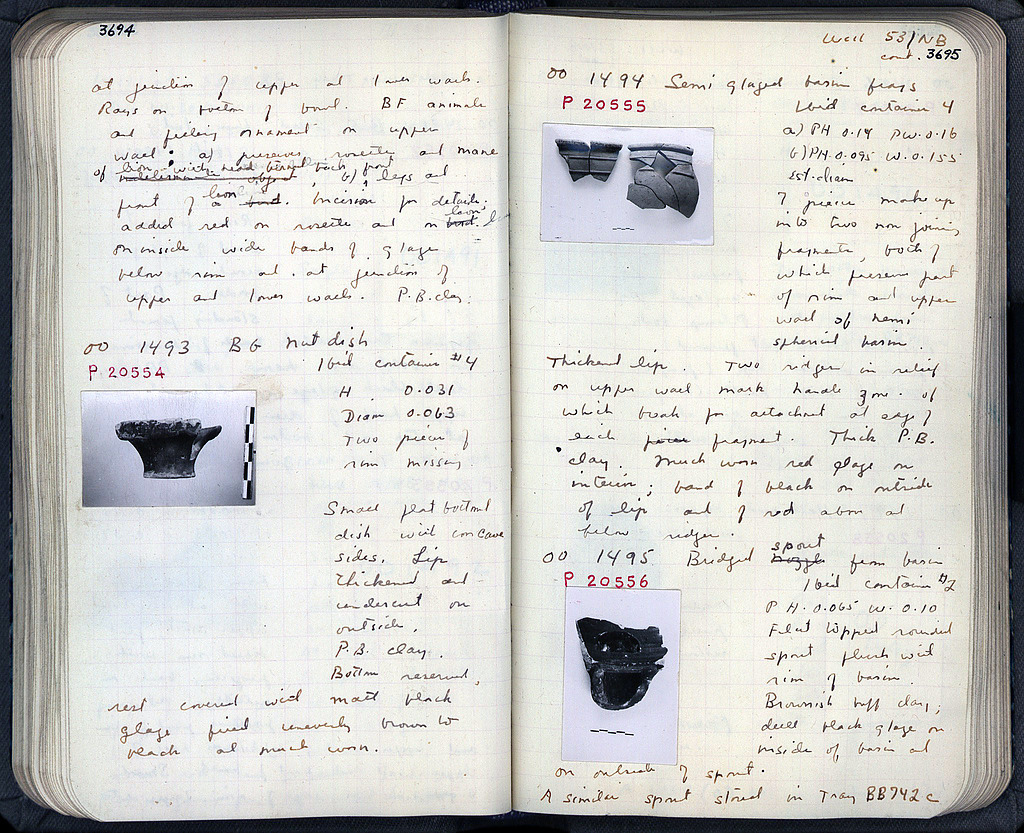 3694
at junction of upper and lower walls.
Rays on bottom of bowl. BF animals
and filling ornament on upper
wall: a) preserves rosette and mane
of lion with head turned back, b) legs and
front of a lion. Incision for details.
added red on rosette and on lion.
on inside wide bands of glaze
below rim and at junction of
upper and lower walls. P.B. clay.
OO 1493 BG nut dish
P 20554
Ibid container #4
H. 0.031
Diam 0.063
Two pieces of
rim missing
Small flat bottomed
dish with concave
sides. Lip
thickened and
undercut on
outside.
P.B. clay.
Bottom reserved,
rest covered with matt black
glaze fired unevenly brown to
black and much worn.
Well 53/NB
cont. 3695
OO 1494 Semi glazed basin frags
P 20555
Ibid container 4
a) PH 0.14 PW. 0.16
b) PH. 0.095 W. 0.155
est. diam
7 pieces make up
into two non joining
fragments, both of
which preserve part
of rim and upper
wall of hemi
spherical basin.
Thickened lip. Two ridges in relief
on upper wall mark handle zone. of
which break for attachment at edge of
each fragment. Thick P.B.
clay. Much worn red glaze on
interior; band of black on outside
of lip and of red above and
below ridges.
OO 1495 Bridged spout from basin
P 20556
Ibid container #2
PH. 0.065 W. 0.10
Flat topped rounded
spout flush with
rim of basin.
Brownish buff clay;
dull black glaze on
inside of basin and
on outside of spout.
A similar spout stored in Tray BB742c